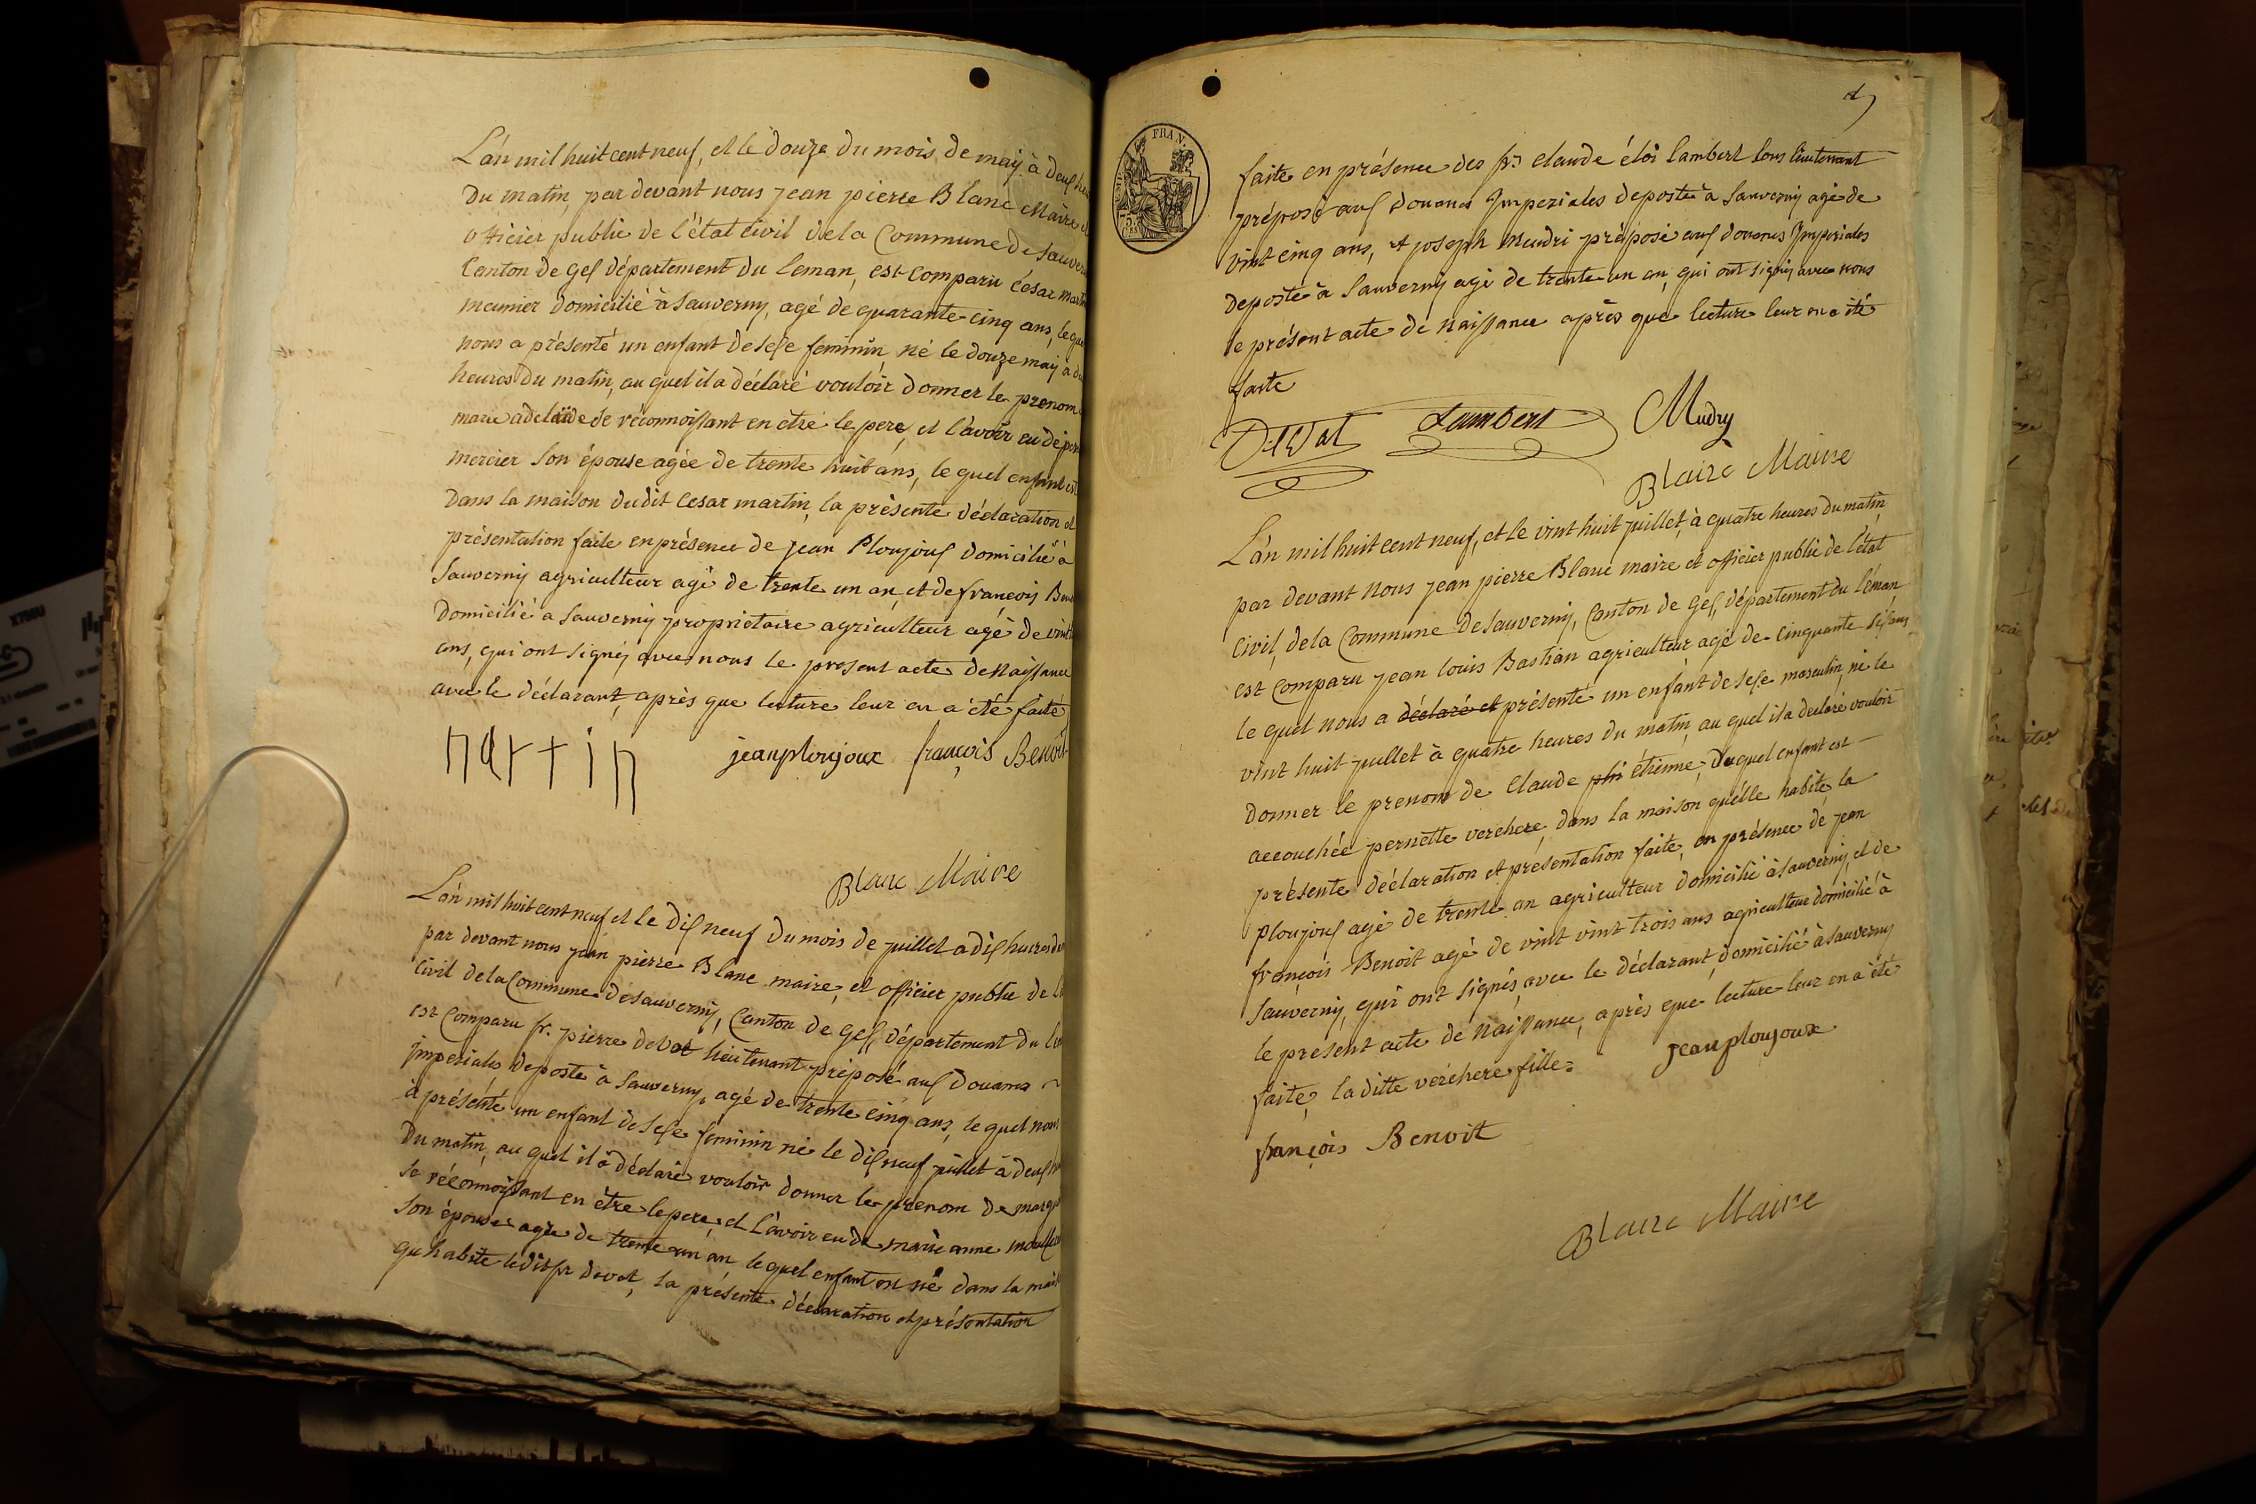 L'án mil huit cent neuf, et le douze du mois de maÿ à deuſ
du matin, par devant nous jean pierre Blanc Maire
officier public de l'état civil dela Commune de
Canton de Geſ département du leman, est Comparu César
meunier domicilié à Sauverny, agé de quarante-cinq ans,
nous a présenté un enfant de seſe feminin né le douze maÿ à
heures du matin, au quel il a déclaré vouloir donner le prenom
marie adelaïde se réconnoiſſant en etre le pere, et l'avoir eu de
mercier son épouse agée de trente huit ans, le quel enfant est
dans la maison dudit Cesar martin, la présente déclaration et
présentation faite en présence de jean Ploujouſ domicilié à
Sauverny agriculteur agé de trente un an, et de françois
domicilié a Sauverny propriétaire agriculteur agé de vint
ans, qui ont signéz avec nous le present acte de Naiſſance
avec le déclarant, après que lecture leur en a été faite
Martin jean ploujoux françois Benoit
Blanc Maire
L'án mil huit cent neuf et le diſ neuf du mois de juillet a diſ heures du
par devant nous jean pierre Blanc maire, et officier public de
civil de la Commune de Sauverny, Canton de Geſ, département du
est Comparu sr. pierre devat lieutenant préposé auſ douanes
jmperiales deposte à Sauverny, agé de trente cinq ans, le quel nous
à présenté un enfant de seſe feminin né le diſ neuf juillet à deuſ
du matin, au quel il a déclaré vouloir donner le prenom de
se réconnoiſſant en être le pere, et l'avoir eu de marie anne
son épouse agée de trente un an, le quel enfant est né dans la
qu'habite ledit sr devat, la présente déclaration et présentation
FRAN.
faite en présence des srs Claude éloi lambert sous lieutenant
préposé auſ douanes Jmperiales deposte à Sauverny agé de
vint cinq ans, et joseph meudri préposé auſ douanes Jmperiales
deposte à Sauverny agé de trente un an, qui ont signéz avec nous
le présent acte de Naiſſance après que lecture leur en a été
faite
Devat Lambert Mudry
Blanc Maire
L'án mil huit cent neuf, et le vint huit juillet, à quatre heures du matin,
par devant Nous jean pierre Blanc maire et officier public de l'état
Civil, dela Commune de Sauverny, Canton de Geſ, département du léman,
est Comparu jean louis Bastian agriculteur agé de cinquante siſ ans,
le quel nous a déclaré et présenté un enfant de seſe masculin, né le
vint huit juillet à quatre heures du matin, au quel il a declaré vouloir
donner le prenom de Claude phi étienne, Duquel enfant est
accouchée pernette verchere, dans la maison qu'elle habite, la
présente déclaration et présentation faite, en présence de jean
ploujouſ agé de trente an agriculteur domicilié à Sauverny, et de
françois Benoit agé de vint vint trois ans agriculteur domicilié à
Sauverny, qui ont signés avec le déclarant, domicilié à Sauverny
le présent acte de Naiſſance, après que lecture leur en a été
faite, la ditte verchere fille. jean ploujoux
françois Benoit
Blanc Maire